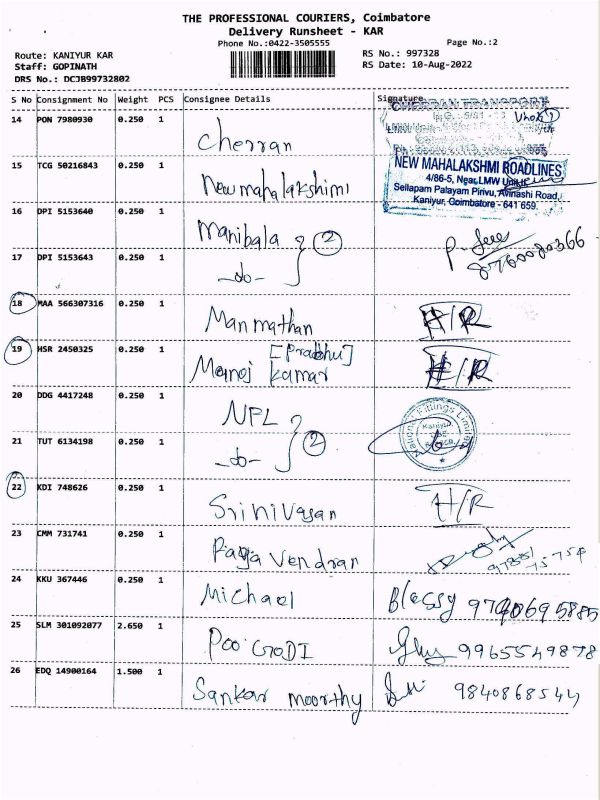 THE PROFESSIONAL COURIERS, Coimbatore
Delivery Runsheet - KAR
Phone No.:0422-3505555
Page No.:2
Route: KANIYUR KAR
RS No.: 997328
Staff: GOPINATH
RS Date: 10-Aug-2022
DRS No.: DCJB99732802
S No Consignment No Weight PCS Consignee Details Signature
CHERRAN TRANSPORT
14 PON 7980930 0.250 1 Cherran
15 TCG 50216843 0.250 1 New mahalakshimi
NEW MAHALAKSHMI ROADLINES
4/86-5, Near LMW Unit
Sellapam Palayam Pirivu, Avinashi Road,
Kaniyur, Coimbatore - 641 659.
16 DPI 5153640 0.250 1 Manibala 2
17 DPI 5153643 0.250 1 -do-
18 MAA 566307316 0.250 1 Manmathan H/R
19 HSR 2450325 0.250 1 Manoj Kamar [Prabhu] H/R
20 DDG 4417248 0.250 1 NPL 2
National Fittings Limited
21 TUT 6134198 0.250 1 -do-
22 KDI 748626 0.250 1 Srinivasan H/R
23 CMM 731741 0.250 1 Vendran
24 KKU 367446 0.250 1 Michael Blessy
25 SLM 301092077 2.650 1 Poo GODI 9965549878
26 EDQ 14900164 1.500 1 Sankar moorthy 9840868544